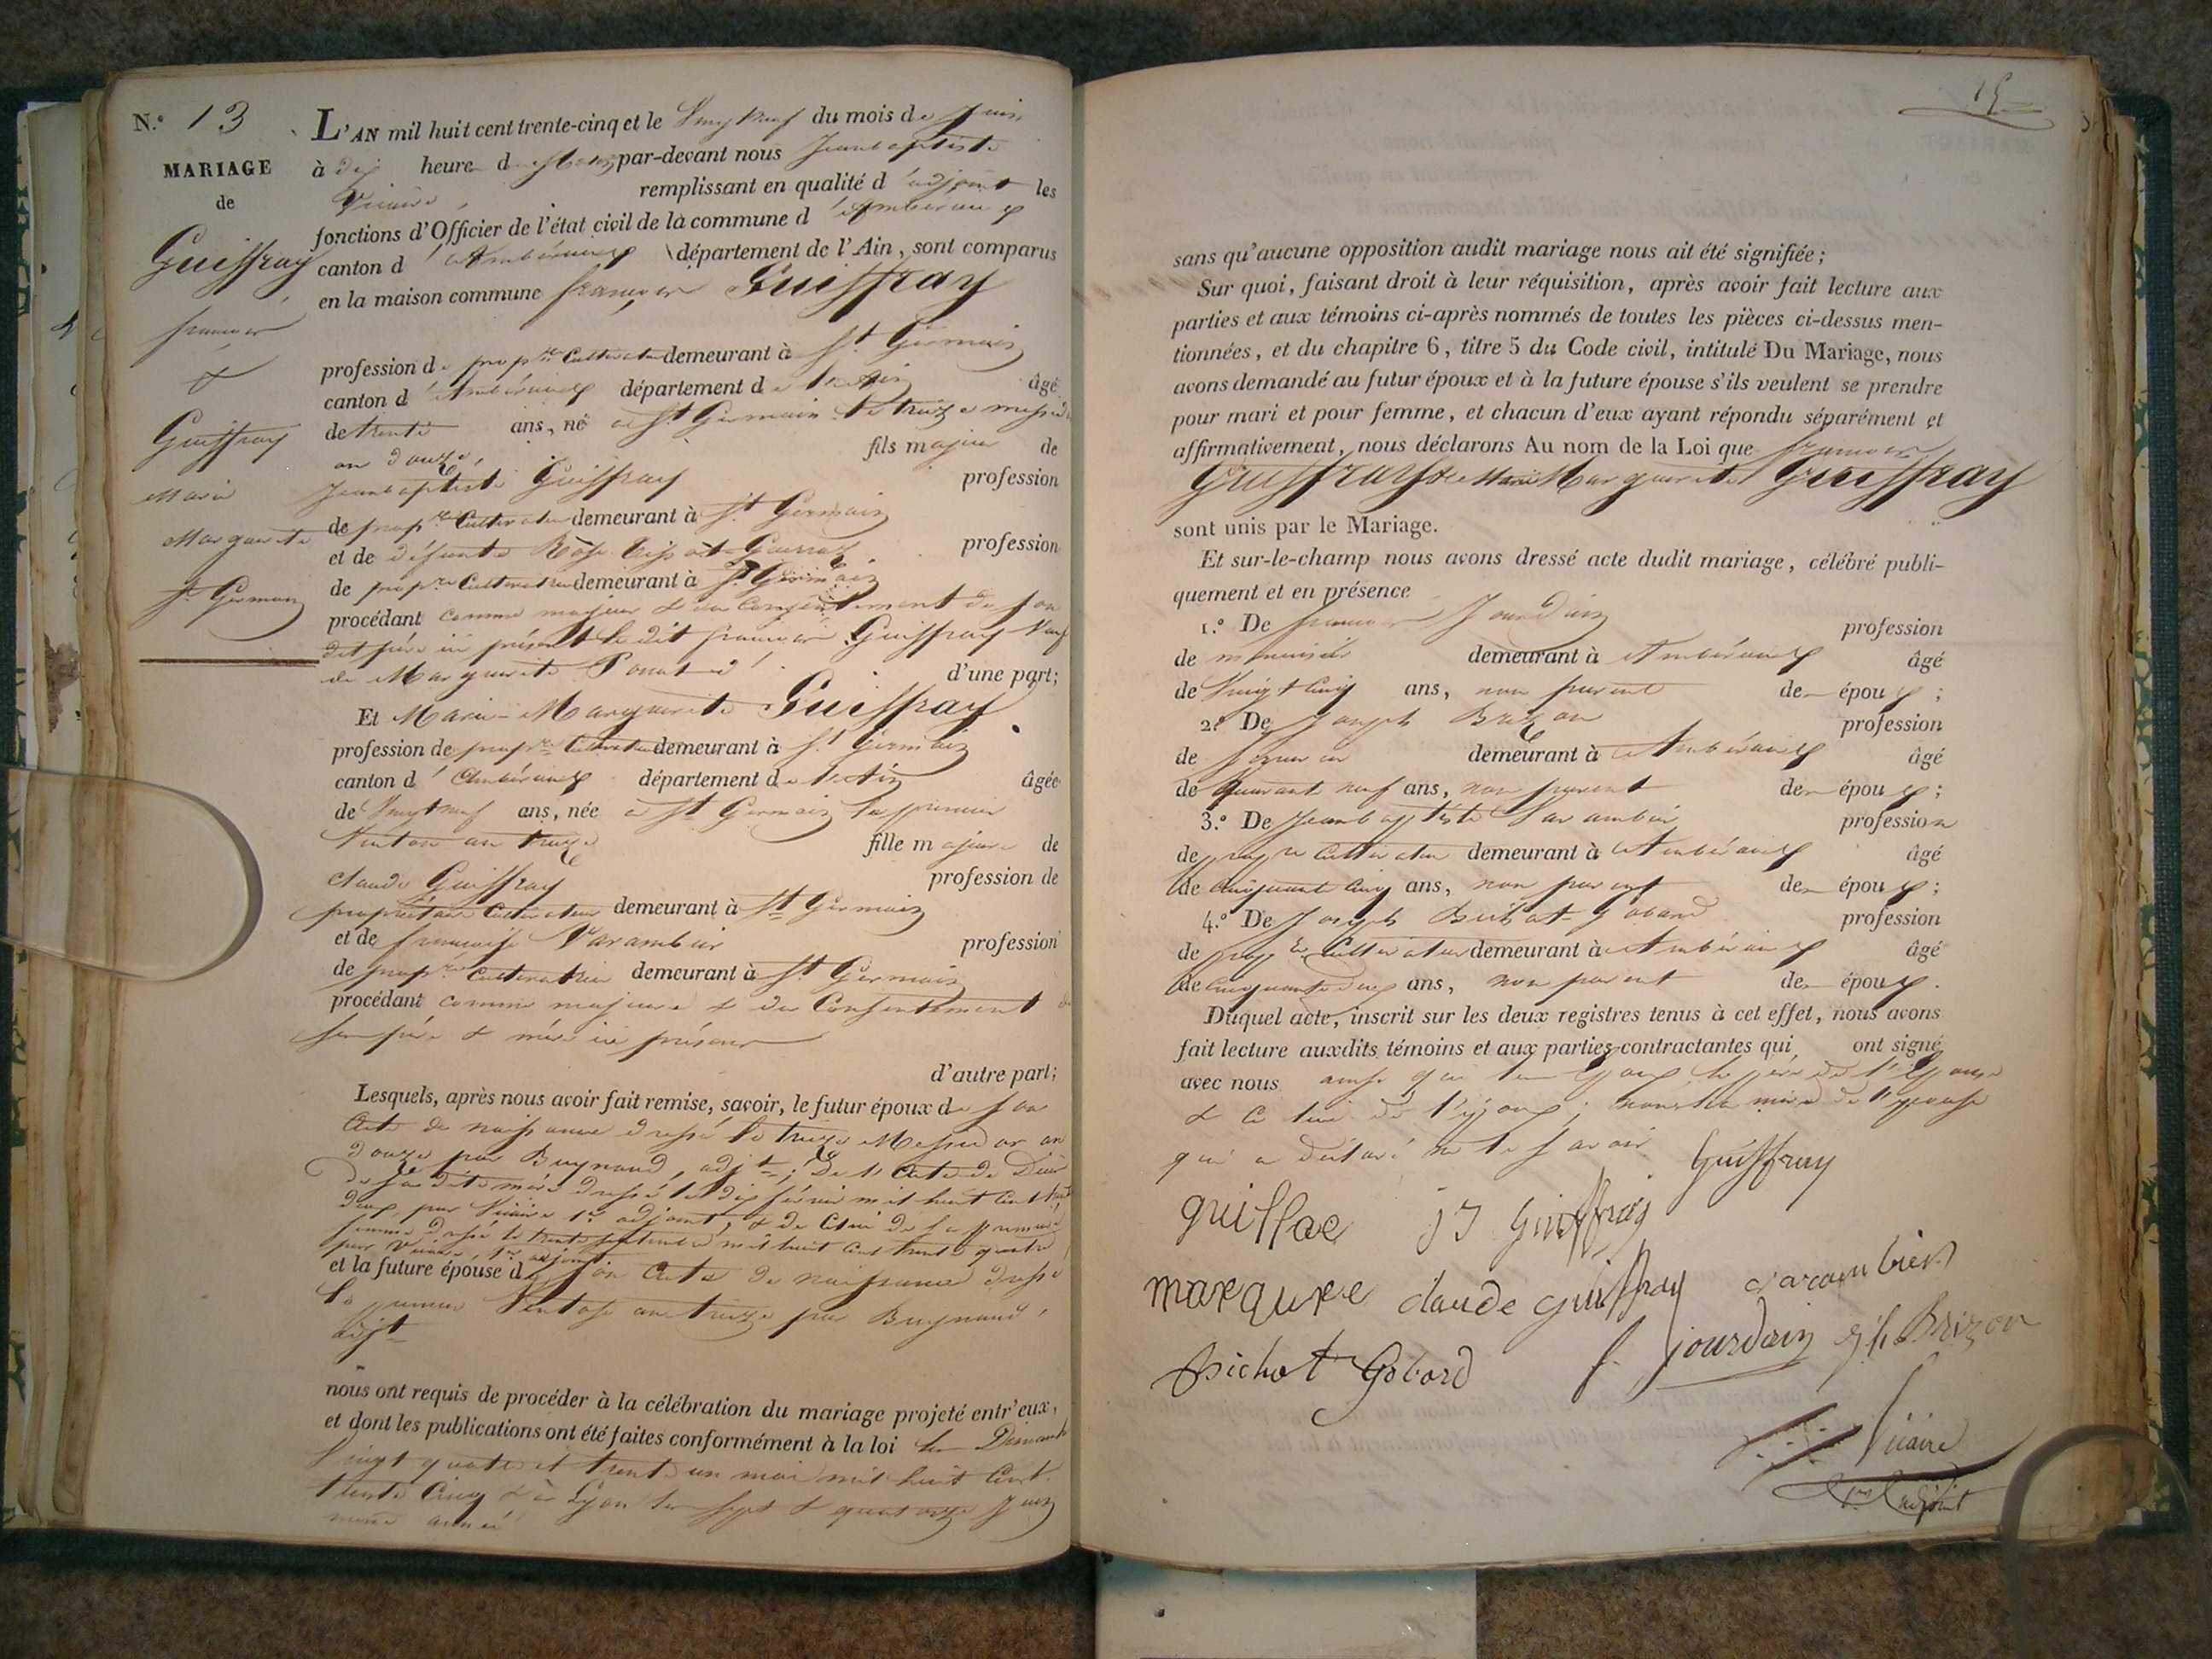 N.º 13
MARIAGE
de
Guiffray
françois
&
Guiffray
Marie
Marguerite
St Germain
L'AN mil huit cent trente-cinq et le Vingt neuf du mois de Juin
à dix heures du Matin par-devant nous Jean baptiste
Vicaire remplissant en qualité d'adjoint les
fonctions d'Officier de l'état civil de la commune d'Ambérieux
canton d'Ambérieux département de l'Ain, sont comparus
en la maison commune françois Guiffray
profession de propre Cultivateur demeurant à St Germain
canton d'Ambérieux département de l'Ain âgé
de trente ans, né à St Germain le treize messidor
an douze, fils majeur de
Jean baptiste Guiffray profession
de propre Cultivateur demeurant à St Germain
et de défunte Rose profession
de propre Cultivatrice demeurant à St Germain
procédant comme majeur & du Consentement de son
dit père ici présent le dit françois Guiffray Veuf
de Marguerite d'une part;
Et Marie-Marguerite Guiffray
profession de propre Cultivatrice demeurant à St Germain
canton d'Ambérieux département de l'Ain âgée
de Vingt neuf ans, née à St Germain le premier
Ventose an treize fille majeure de
Claude Guiffray profession de
propriétaire Cultivateur demeurant à St Germain
et de françoise Varambier profession
de propre Cultivatrice demeurant à St Germain
procédant comme majeure & du Consentement de
ses père & mère ici présens
d'autre part;
Lesquels, après nous avoir fait remise, savoir, le futur époux de son
acte de naissance dressé le treize Messidor an
douze par Buynand, adjt; De l'acte de Décès
de sa dite mère dressé le dix février mil huit cent trente
deux, par Vicaire 1er adjoint, & de Celui de sa première
femme dressé le trente septembre mil huit cent trente quatre
par Vicaire, 1er adjoint
et la future épouse de son acte de naissance dressé
le premier Ventose an treize par Buynand,
adjt
nous ont requis de procéder à la célébration du mariage projeté entr'eux,
et dont les publications ont été faites conformément à la loi les Dimanches
Vingt quatre et trente un mai mil huit Cent
trente Cinq & à Lyon les sept & quatorze Juin
même année
15
sans qu'aucune opposition audit mariage nous ait été signifiée;
Sur quoi, faisant droit à leur réquisition, après avoir fait lecture aux
parties et aux témoins ci-après nommés de toutes les pièces ci-dessus men-
tionnées, et du chapitre 6, titre 5 du Code civil, intitulé Du Mariage, nous
avons demandé au futur époux et à la future épouse s'ils veulent se prendre
pour mari et pour femme, et chacun d'eux ayant répondu séparément et
affirmativement, nous déclarons Au nom de la Loi que françois
Guiffray & Marie Marguerite Guiffray
sont unis par le Mariage.
Et sur-le-champ nous avons dressé acte dudit mariage, célébré publi-
quement et en présence
1.º De françois Jourdain profession
de menuisier demeurant à Ambérieux âgé
de Vingt Cinq ans, non parent des époux;
2.º De Joseph Brizon profession
de demeurant à Ambérieux âgé
de quarante neuf ans, non parent des époux;
3.º De Jean baptiste Varambier profession
de propre Cultivateur demeurant à Ambérieux âgé
de cinquante Cinq ans, non parent des époux;
4.º De Joseph Bichat Gobard profession
de propre Cultivateur demeurant à Ambérieux âgé
de cinquante deux ans, non parent des époux.
Duquel acte, inscrit sur les deux registres tenus à cet effet, nous avons
fait lecture auxdits témoins et aux parties contractantes qui ont signé
avec nous ainsi que le père de l'Epouse
& Celui de l'époux; non la mère de l'épouse
qui a déclaré ne le savoir
Guiffray
guiffae J B Guiffray
marqure claude guiffray varambier
Bichat Gobard f. Jourdain Jh Brizon
Vicaire
1er adjoint